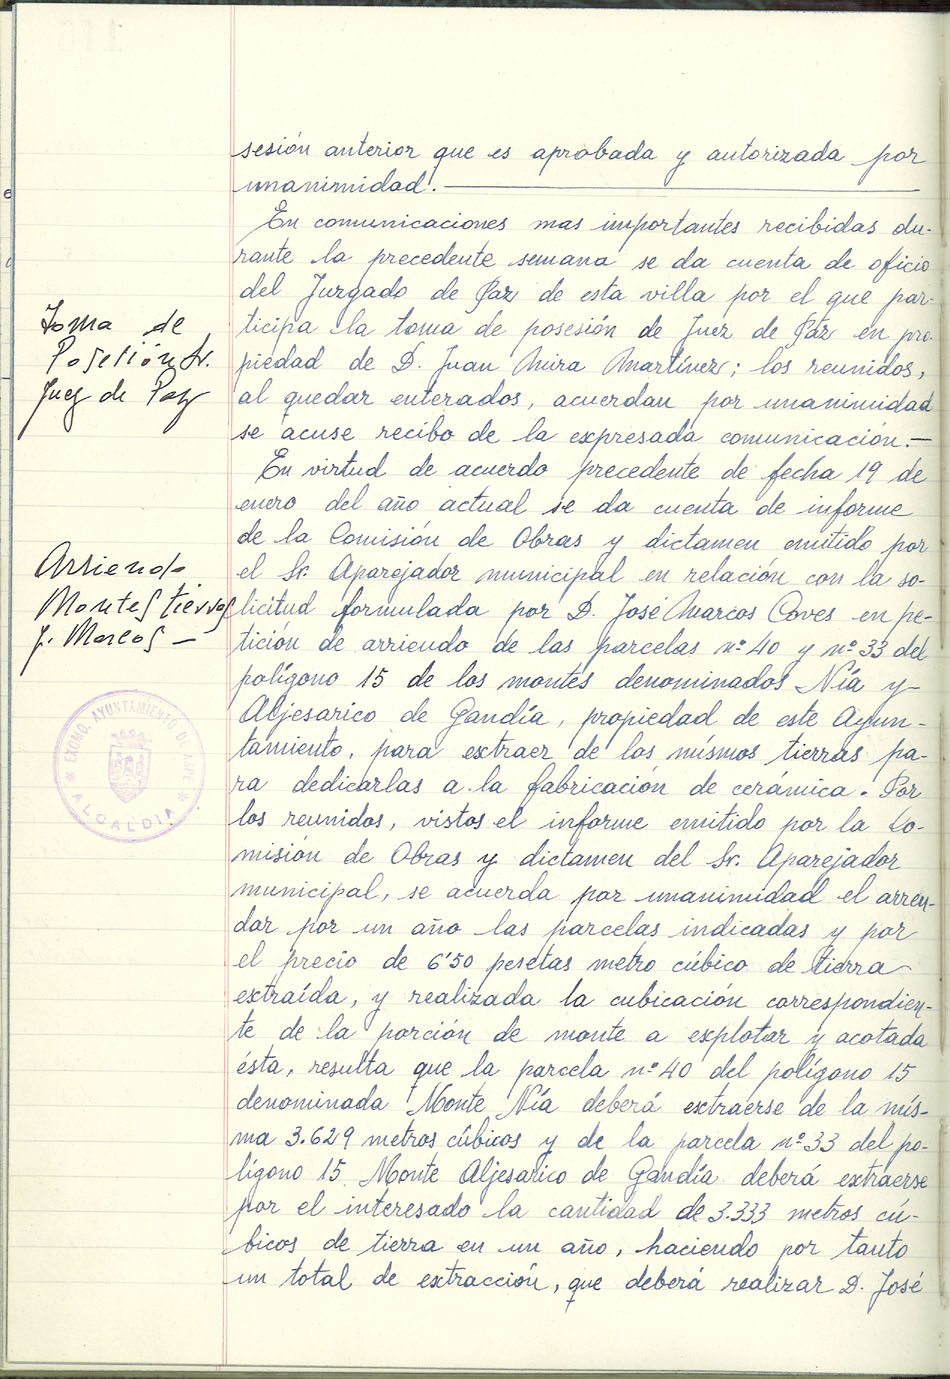 sesión anterior que es aprobada y autorizada por
unanimidad.
En comunicaciones mas importantes recibidas du-
rante la precedente semana se da cuenta de oficio
del Juzgado de Paz de esta villa por el que par-
ticipa la toma de posesión de Juez de Paz en pro-
piedad de D. Juan Mira Martínez; los reunidos,
al quedar enterados, acuerdan por unanimidad
se acuse recibo de la expresada comunicación.—
En virtud de acuerdo precedente de fecha 19 de
enero del año actual se da cuenta de informe
de la Comisión de Obras y dictamen emitido por
el Sr. Aparejador municipal en relación con la so-
licitud formulada por D. José Marcos Cerves en pe-
tición de arriendo de las parcelas nº 40 y nº 33 del
polígono 15 de los montes denominados Nía y
Aljesarico de Gandía, propiedad de este Ayun-
tamiento, para extraer de los mísmos tierras pa-
ra dedicarlas a la fabricación de cerámica. Por
los reunidos, vistos el informe emitido por la Co-
misión de Obras y dictamen del Sr. Aparejador
municipal, se acuerda por unanimidad el arren-
dar por un año las parcelas indicadas y por
el precio de 6'50 pesetas metro cúbico de tierra
extraída, y realizada la cubicación correspondien-
te de la porción de monte a explotar y acotada
ésta, resulta que la parcela nº 40 del polígono 15
denominada Monte Nía deberá extraerse de la mís-
ma 3.629 metros cúbicos y de la parcela nº 33 del po-
lígono 15 Monte Aljesarico de Gandía deberá extraerse
por el interesado la cantidad de 3.333 metros cú-
bicos de tierra en un año, haciendo por tanto
un total de extracción, que deberá realizar D. José
Toma de
Posesión Sr.
Juez de Paz
Arriendo
Montes tierras
J. Marcos —
EXCMO. AYUNTAMIENTO DE ASPE
ALCALDIA